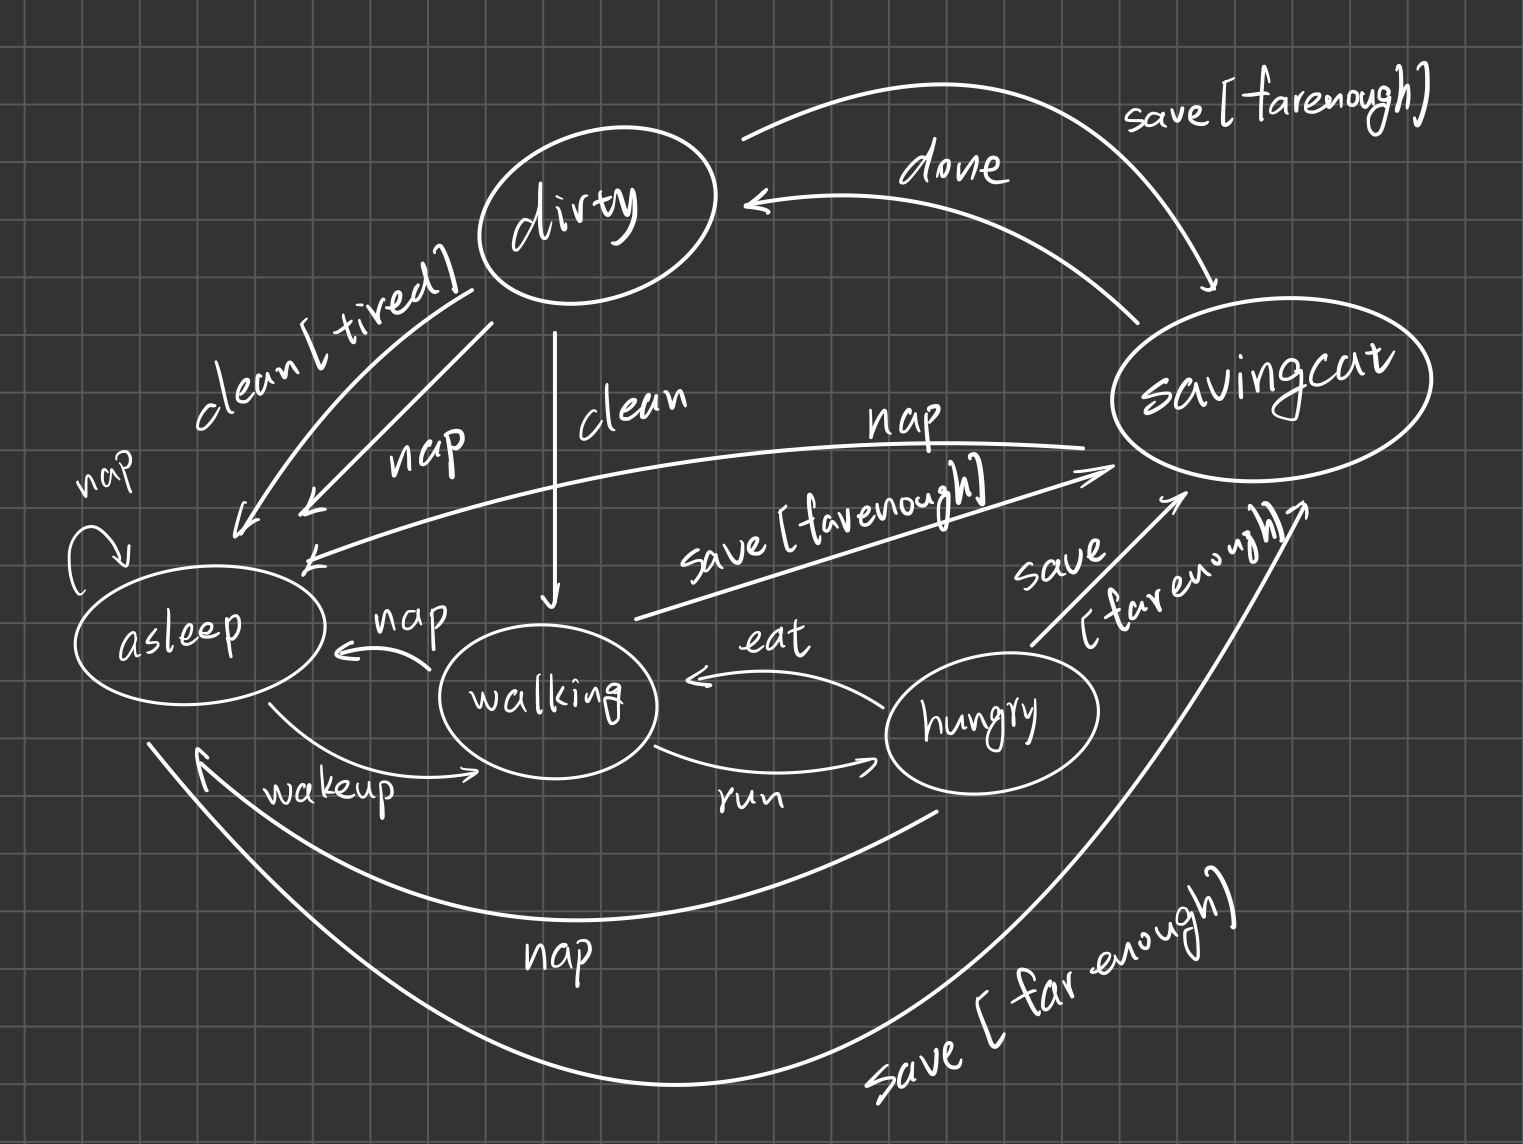 save [farenough]
done
dirty
clean [tired]
savingcat
clean
nap
nap
nap
save [farenough]
save
[farenough]
asleep
nap
eat
walking
hungry
wakeup
run
nap
save [far enough]